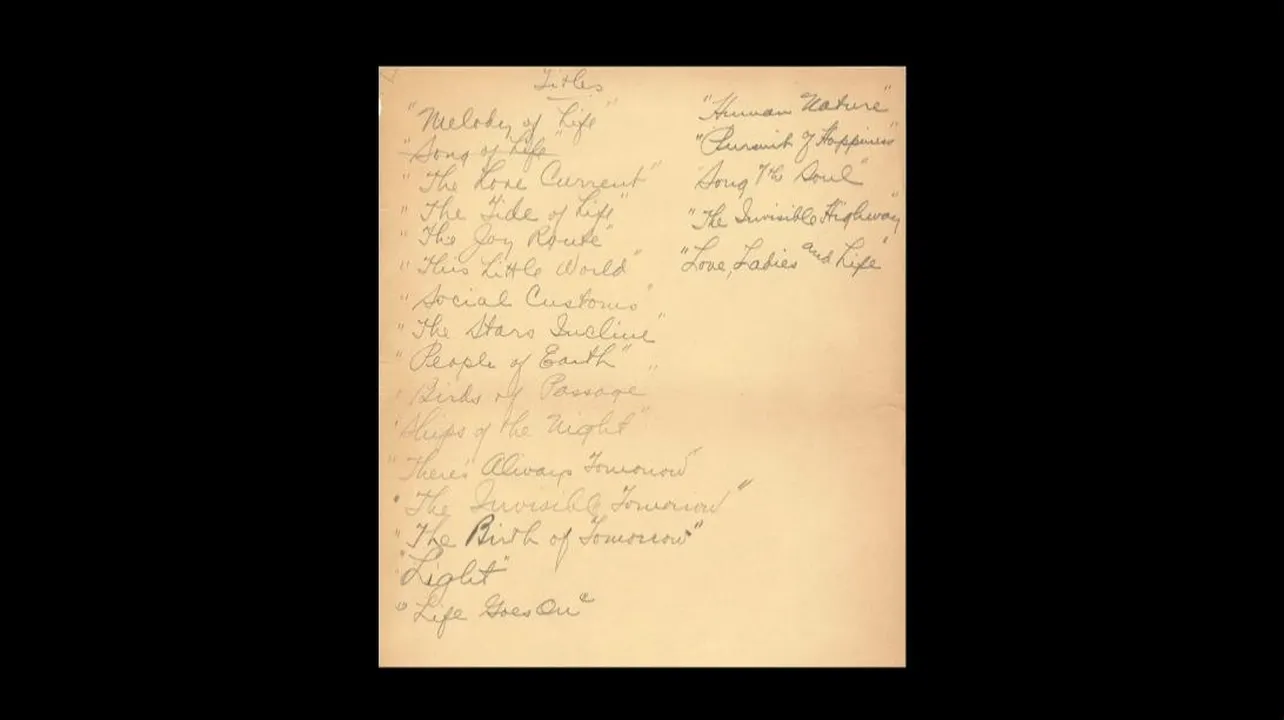 Titles
"Melody of Life"
"Song of Life"
"The Love Current"
"The Tide of Life"
"The Joy Route"
"This Little World"
"Social Customs"
"The Stars Incline"
"People of Earth"
"Birds of Passage"
"Ships of the Night"
"There's Always Tomorrow"
"The Invisible Tomorrow"
"The Birth of Tomorrow"
"Light"
"Life Goes On"
"Human Nature"
"Pursuit of Happiness"
"Song of the Soul"
"The Invisible Highway"
"Love, Ladies and Life"